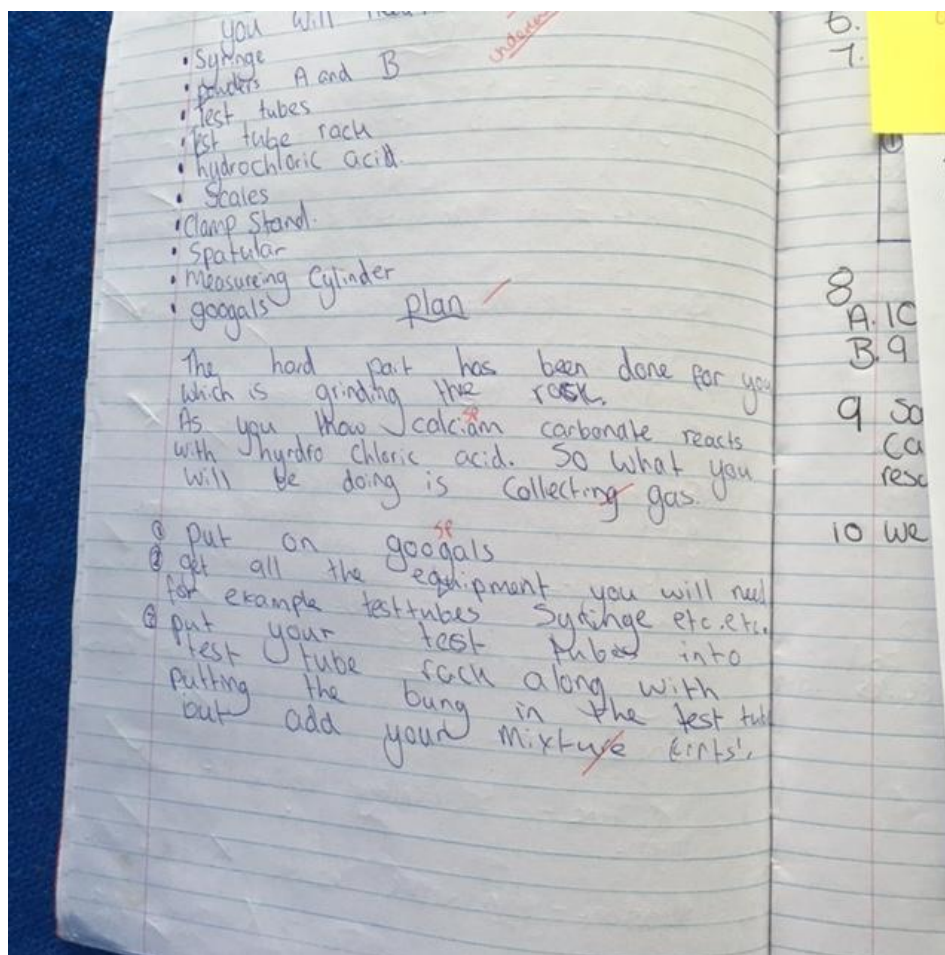 you will need
underline
• Syringe
• powders A and B
• test tubes
• test tube rack
• hydrochloric acid.
• Scales
• Clamp Stand.
• Spatular
• Measureing Cylinder
• googals
plan
The hard part has been done for you
which is grinding the rock.
As you know calciam carbonate reacts
sp
with hyrdro chloric acid. So what you
will be doing is collecting gas.
① put on googals
sp
② get all the equipment you will need
for example testtubes Syringe etc.etc.
③ put your test tubes into
test tube rack along with
putting the bung in the test tub
but add your mixture
6.
7.
8
A. 10
B. 9
9 So
Ca
10 We